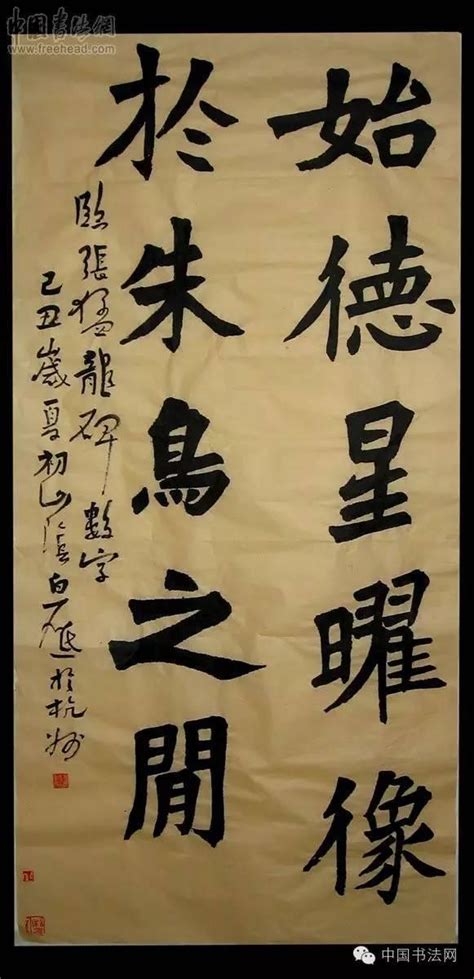 始德星曜像
於朱鳥之閒
臨張猛龍碑數字
己丑歲夏初山陰白砥於杭州
中国书法網
www.freehead.com
中国书法网